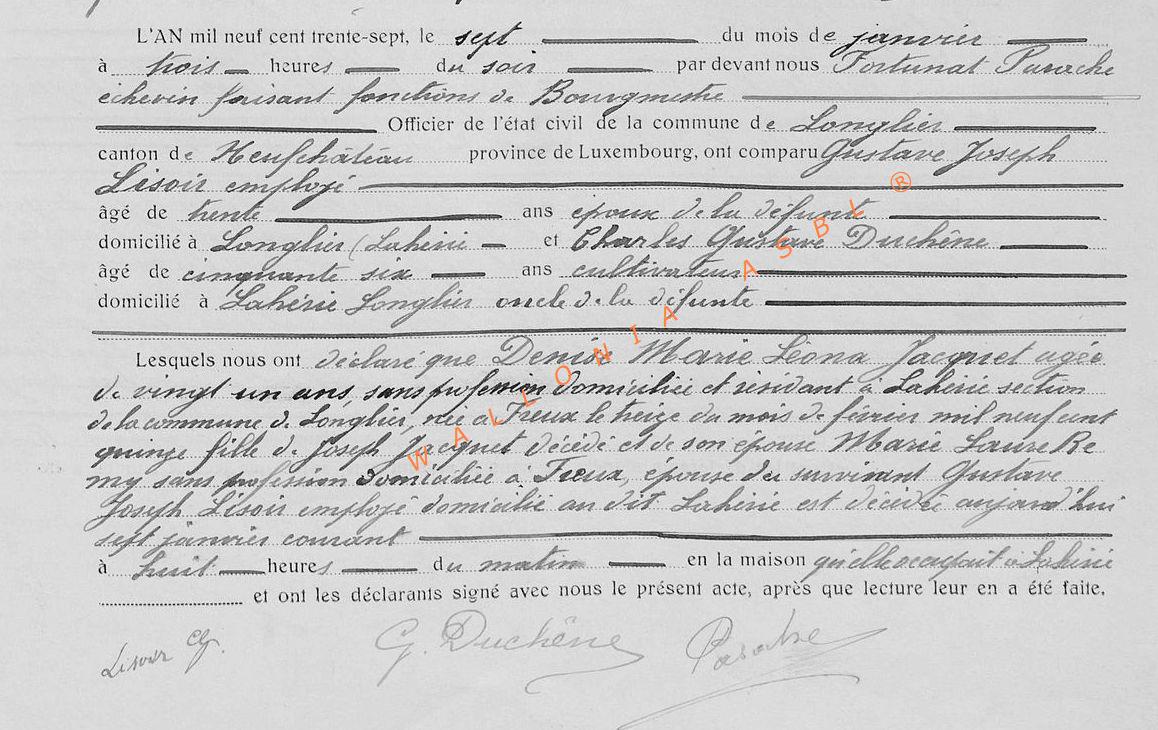 L'AN mil neuf cent trente-sept, le sept du mois de janvier
à trois heures du soir par devant nous Fortunat
échevin faisant fonctions de Bourgmestre
Officier de l'état civil de la commune de Longlier
canton de Neufchâteau province de Luxembourg, ont comparu Gustave Joseph
Lisoir employé
âgé de trente ans époux de la défunte
domicilié à Longlier (Lahérie et Charles Gustave Duchêne
âgé de cinquante six ans cultivateur
domicilié à Lahérie Longlier oncle de la défunte
Lesquels nous ont déclaré que Denise Marie Léona Jacquet agée
de vingt un ans, sans profession domiciliée et résidant à Lahérie section
de la commune de Longlier, née à Freux le treize du mois de février mil neuf cent
quinze fille de Joseph Jacquet décédé et de son épouse Marie Laure Re
my sans profession domiciliée à Freux, épouse du survivant Gustave
Joseph Lisoir employé domicilié au dit Lahérie est décédée aujourd'hui
sept janvier courant
à huit heures du matin en la maison qu'elle occupait à Lahérie
et ont les déclarants signé avec nous le présent acte, après que lecture leur en a été faite,
Lisoir G. Duchêne
WALLONIA ASBL ®